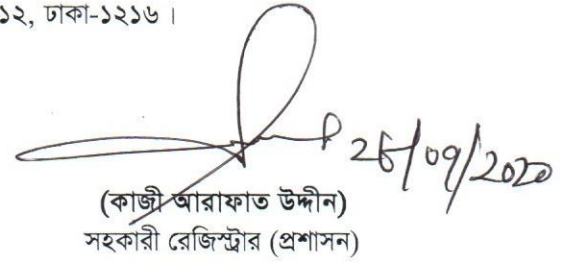 ১২, ঢাকা-১২১৬।
26/09/2020
(কাজী আরাফাত উদ্দীন)
সহকারী রেজিস্ট্রার (প্রশাসন)